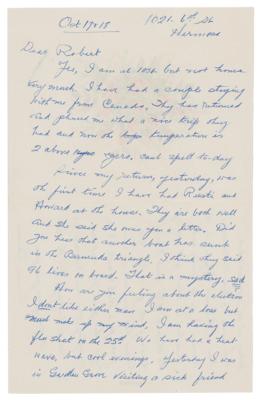 Oct 17 & 18
1021. 6th St
Hermosa
Dear Robert
Yes, I am at 10th but not home
very much. I have had a couple staying
with me from Canada. They has returned
and phoned me what a nice trip they
had and now the temperature is
2 above. Cool spell to-day
Since my return, yesterday, was
the first time I have had Rusti and
Howard at the house. They are both well
and she said she owes you a letter. Did
you hear that another boat has sunk
in the Bermuda triangle, I think they said
96 lives on board. That is a mystery.
How are you feeling about the election
I don't like either man. I am at a loss but
must make up my mind, I am having the
flu shot on the 25th. We have had a heat
wave, but cool evenings. Yesterday I was
in Garden Grove visiting a sick friend